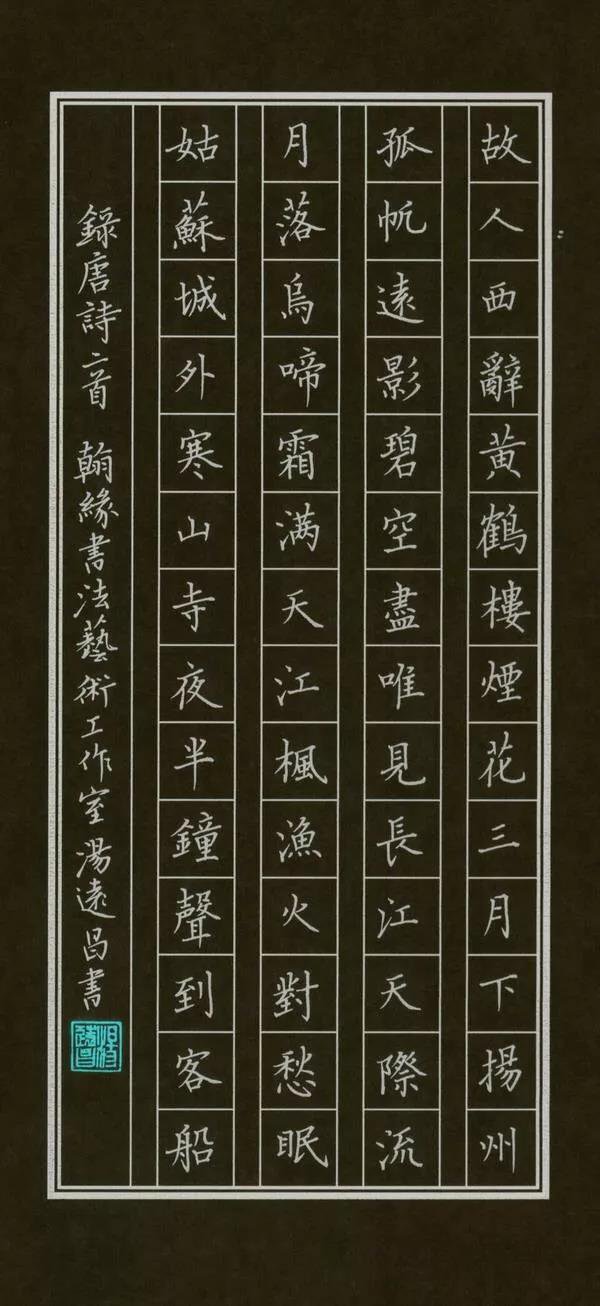 故人西辭黃鶴樓煙花三月下揚州
孤帆遠影碧空盡唯見長江天際流
月落烏啼霜满天江楓漁火對愁眠
姑蘇城外寒山寺夜半鐘聲到客船
錄唐詩二首 翰緣書法藝術工作室湯遠昌書